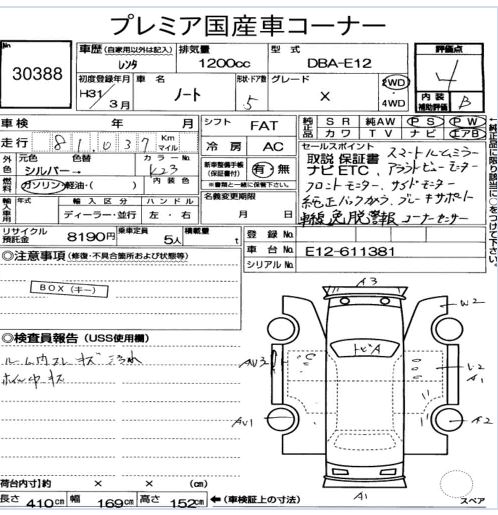 プレミア国産車コーナー
No
30388
車歴 (自家用以外は記入)
レンタ
排気量
1200cc
型式
DBA-E12
評価点
4
初度登録年月
H31年
3月
車名
ノート
形状・ドア数
5
グレード
X
2WD
・
4WD
内装
補助評価
B
車検 年 月
走行 81,037 Km
マイル
シフト FAT
冷房 AC
純正品
SR 純AW PS PW
カワ TV ナビ エアB
←純正品に限り該当に○をつけて下さい。
外色
元色 色替 カラーNo
シルバー→ K23
燃料
ガソリン・軽油・( ) 内装色
新車整備手帳
(保証書付)
有・無
※書類と一緒に保管下さい。
セールスポイント
取説 保証書 スマートルームミラー
ナビ ETC、アラウンドビューモニター
フロントモニター、サイドモニター
純正バックカメラ、ブレーキサポート
車線逸脱警報 コーナーセンサー
輸入車用
輸入区分 ハンドル
ディーラー・並行 左・右
名義変更期限
月 日
リサイクル
預託金
8190円
乗車定員
5人
積載量
t
登録No.
車台No. E12-611381
シリアルNo.
◎注意事項 (修復・不具合箇所および状態等)
BOX(キー)
◎検査員報告 (USS使用欄)
ルーム内スレ キズ 汚れ
ホイル中キズ
A3
W2
トビA
AV3
U2
A1
AV1
A2
A1
スペア
荷台内寸 約 × × (cm)
長さ 410cm 幅 169cm 高さ 152cm ←(車検証上の寸法)